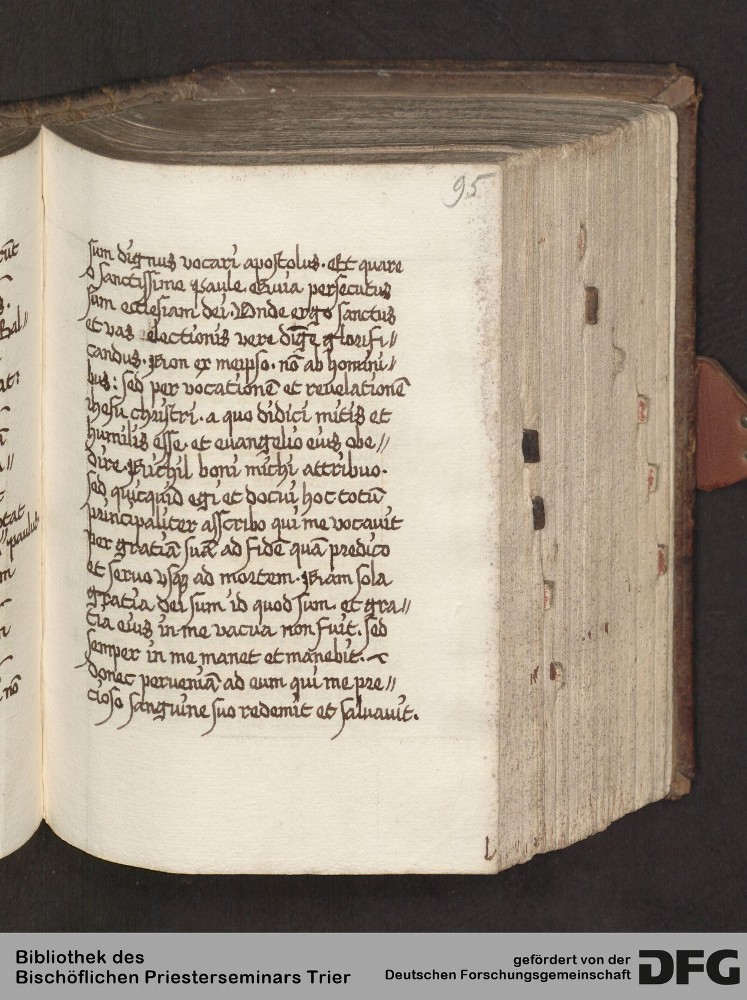 95
sum dignus vocari apostolus. Et quare
o sanctissime paule. Quia persecutus
sum ecclesiam dei. Vnde ergo sanctus
et vas electionis vere digne glorifi//
candus. Non ex meipso. nō ab homini//
bus: sed per vocationē et reuelationē
ihesu christi. a quo didici mitis et
humilis esse. et euangelio eius obe//
dire. Nichil boni michi attribuo.
sed quicquid egi et docui hoc totū
principaliter asscribo qui me vocauit
per gratiā suā ad fidē quā predico
et seruo vsq; ad mortem. Nam sola
gratia dei sum id quod sum. et gra//
tia eius in me vacua non fuit. sed
semper in me manet et manebit.
donec perueniā ad eum qui me pre//
cioso sanguine suo redemit et saluauit.
Bibliothek des
Bischöflichen Priesterseminars Trier
gefördert von der
Deutschen Forschungsgemeinschaft DFG